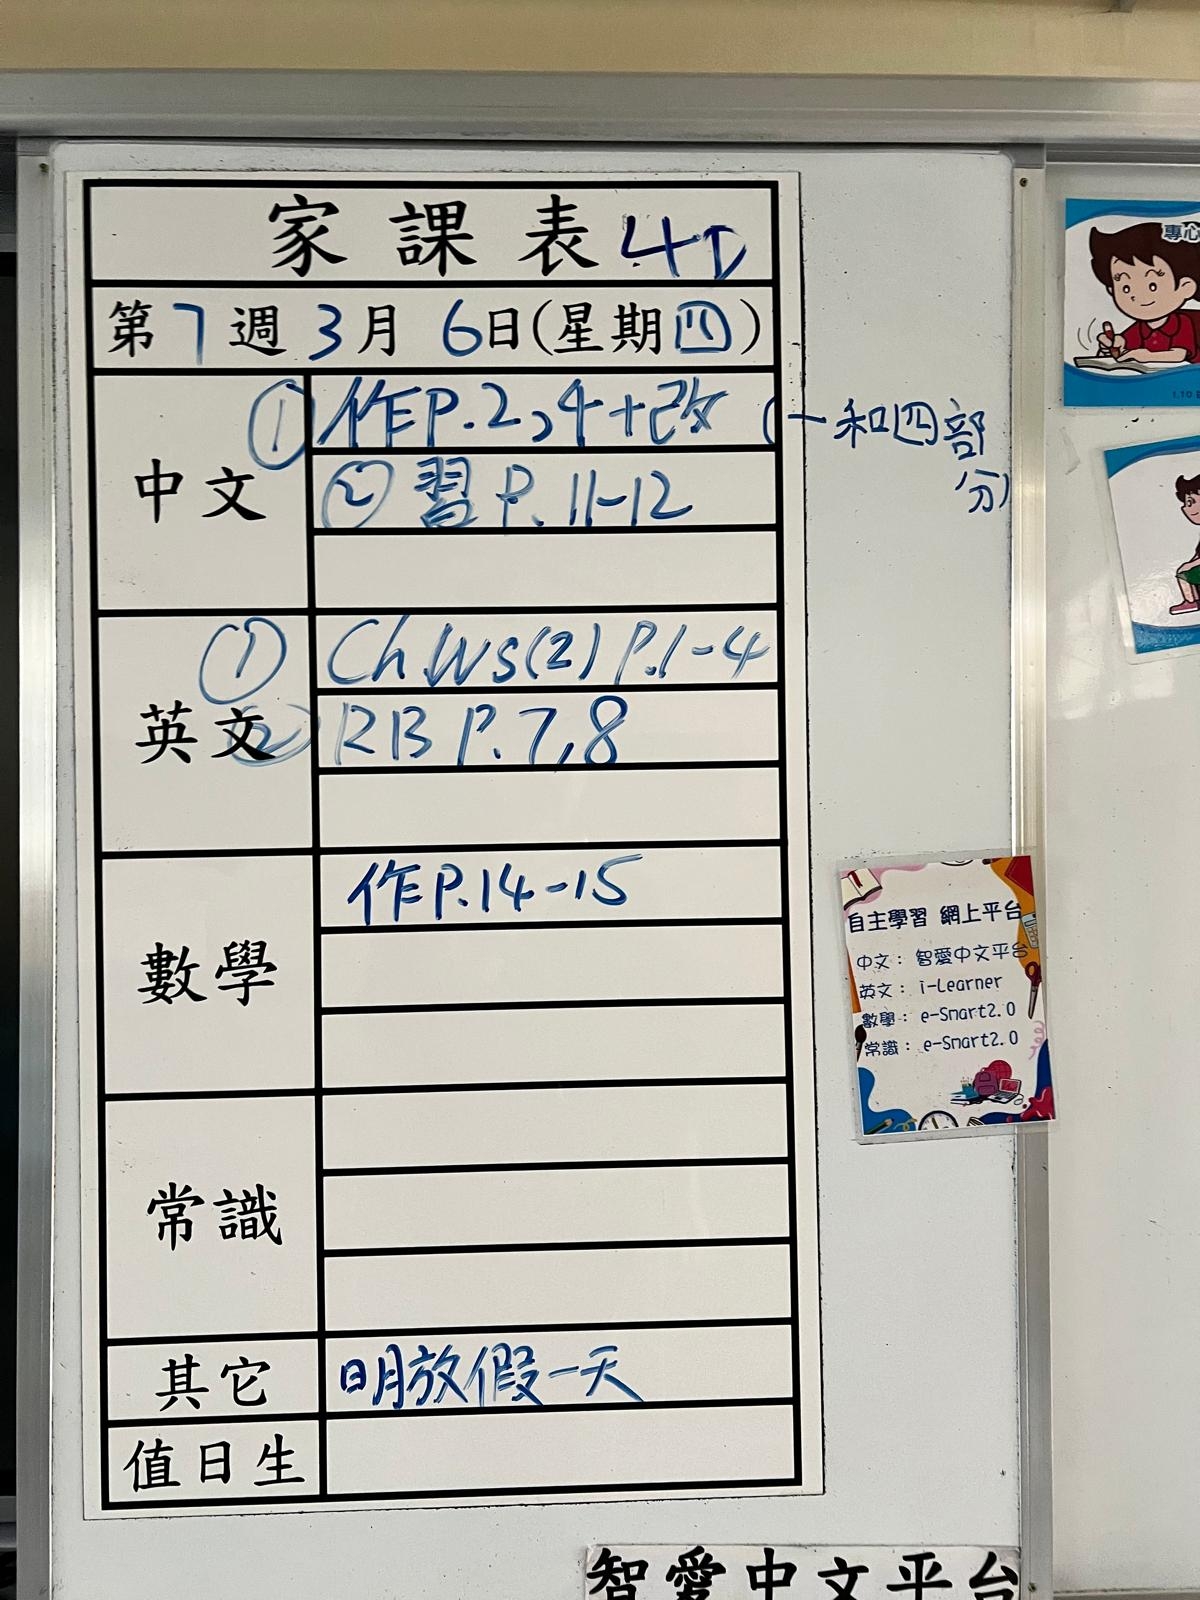 家課表 4D
第7週3月6日(星期四)
中文
① 作P.2,4+改 (一和四部
分)
② 習P.11-12
英文
① Ch.WS(2) P.1-4
② RB P.7,8
數學
作P.14-15
常識
其它
明放假一天
值日生
專心
自主學習 網上平台
中文: 智愛中文平台
英文: i-Learner
數學: e-Smart2.0
常識: e-Smart2.0
智愛中文平台